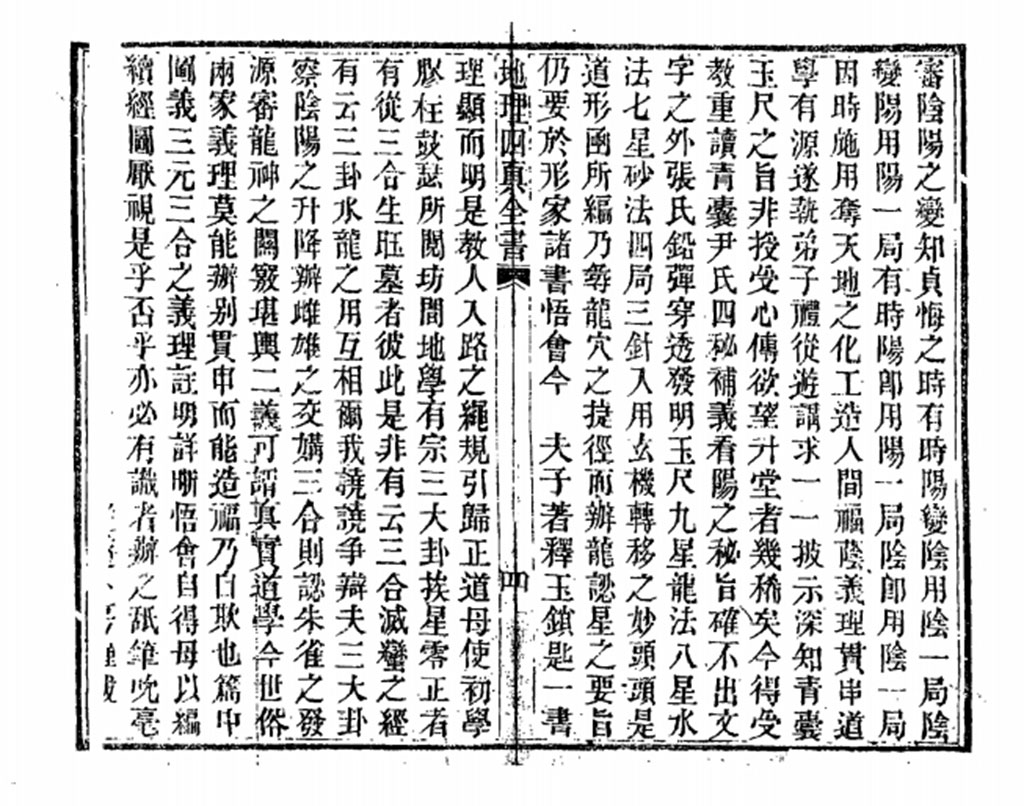 審陰陽之變知貞悔之時有時陽變陰用陰一局陰
變陽用陽一局有時陽卽用陽一局陰卽用陰一局
因時施用奪天地之化工造人間福蔭義理貫串道
學有源遂執弟子禮從遊講求一一披示深知青囊
玉尺之旨非授受心傳欲望升堂者幾稀矣今得受
教重讀青囊尹氏四秘補義看陽之秘旨確不出文
字之外張氏鉛彈穿透發明玉尺九星龍法八星水
法七星砂法四局三針入用玄機轉移之妙頭頭是
道形圅所編乃尋龍穴之捷徑而辦龍認星之要旨
仍要於形家諸書悟會今　夫子著釋玉鎖匙一書
地理四真全書
四
理顯而明是教人入路之繩規引歸正道毋使初學
膠柱鼓瑟所閱坊間地學有宗三大卦挨星零正者
有從三合生旺墓者彼此是非有云三合滅蠻之經
有云三卦水龍之用互相爾我譊譊争辯夫三大卦
察陰陽之升降辦雌雄之交媾三合則認朱雀之發
源審龍神之關竅堪輿二義可謂真實道學今世俗
兩家義理莫能辦别貫串而能造福乃自欺也篇中
圖義三元三合之義理註明詳晰悟會自得毋以編
續經圖厭視是乎否乎亦必有識者辦之舐筆吮毫